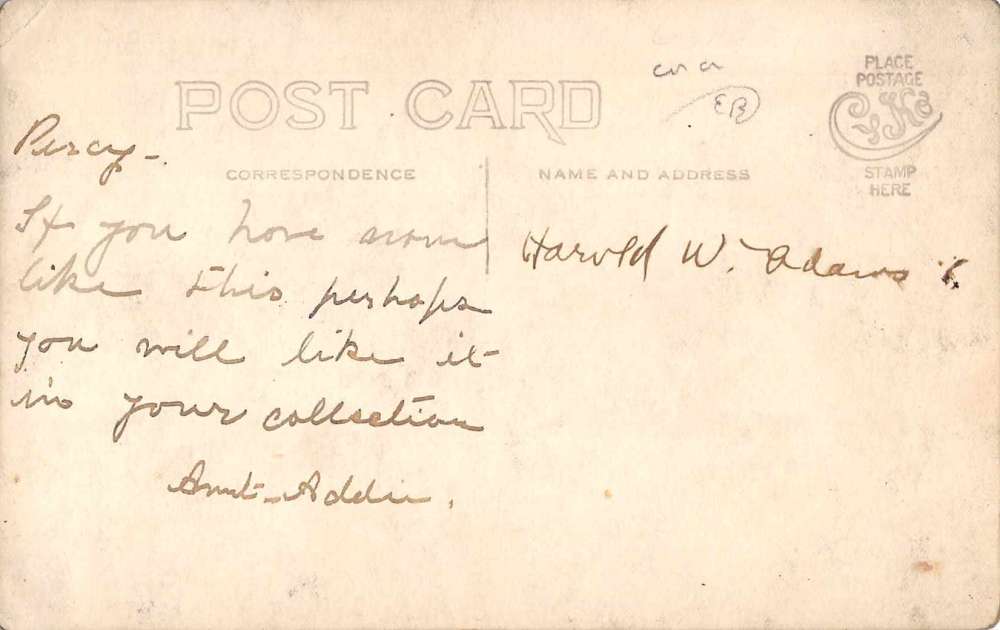 POST CARD
EB
PLACE
POSTAGE
STAMP
HERE
CORRESPONDENCE
NAME AND ADDRESS
Percy-
If you have none
like this perhaps
you will like it
in your collection
Aunt-Addie.
Harold W. Adams